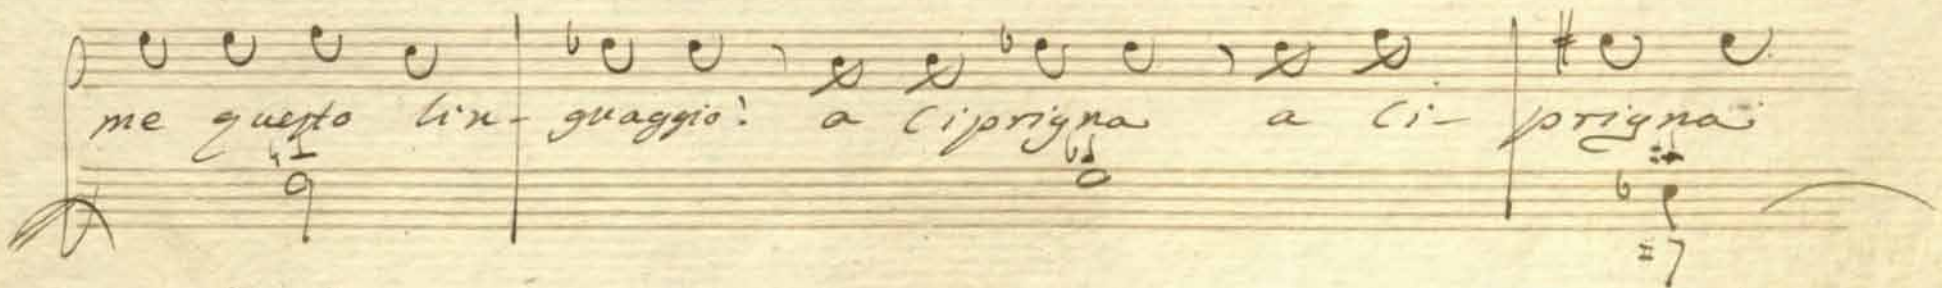 me questo lin- guaggio! a Ciprigna a Ci- prigna